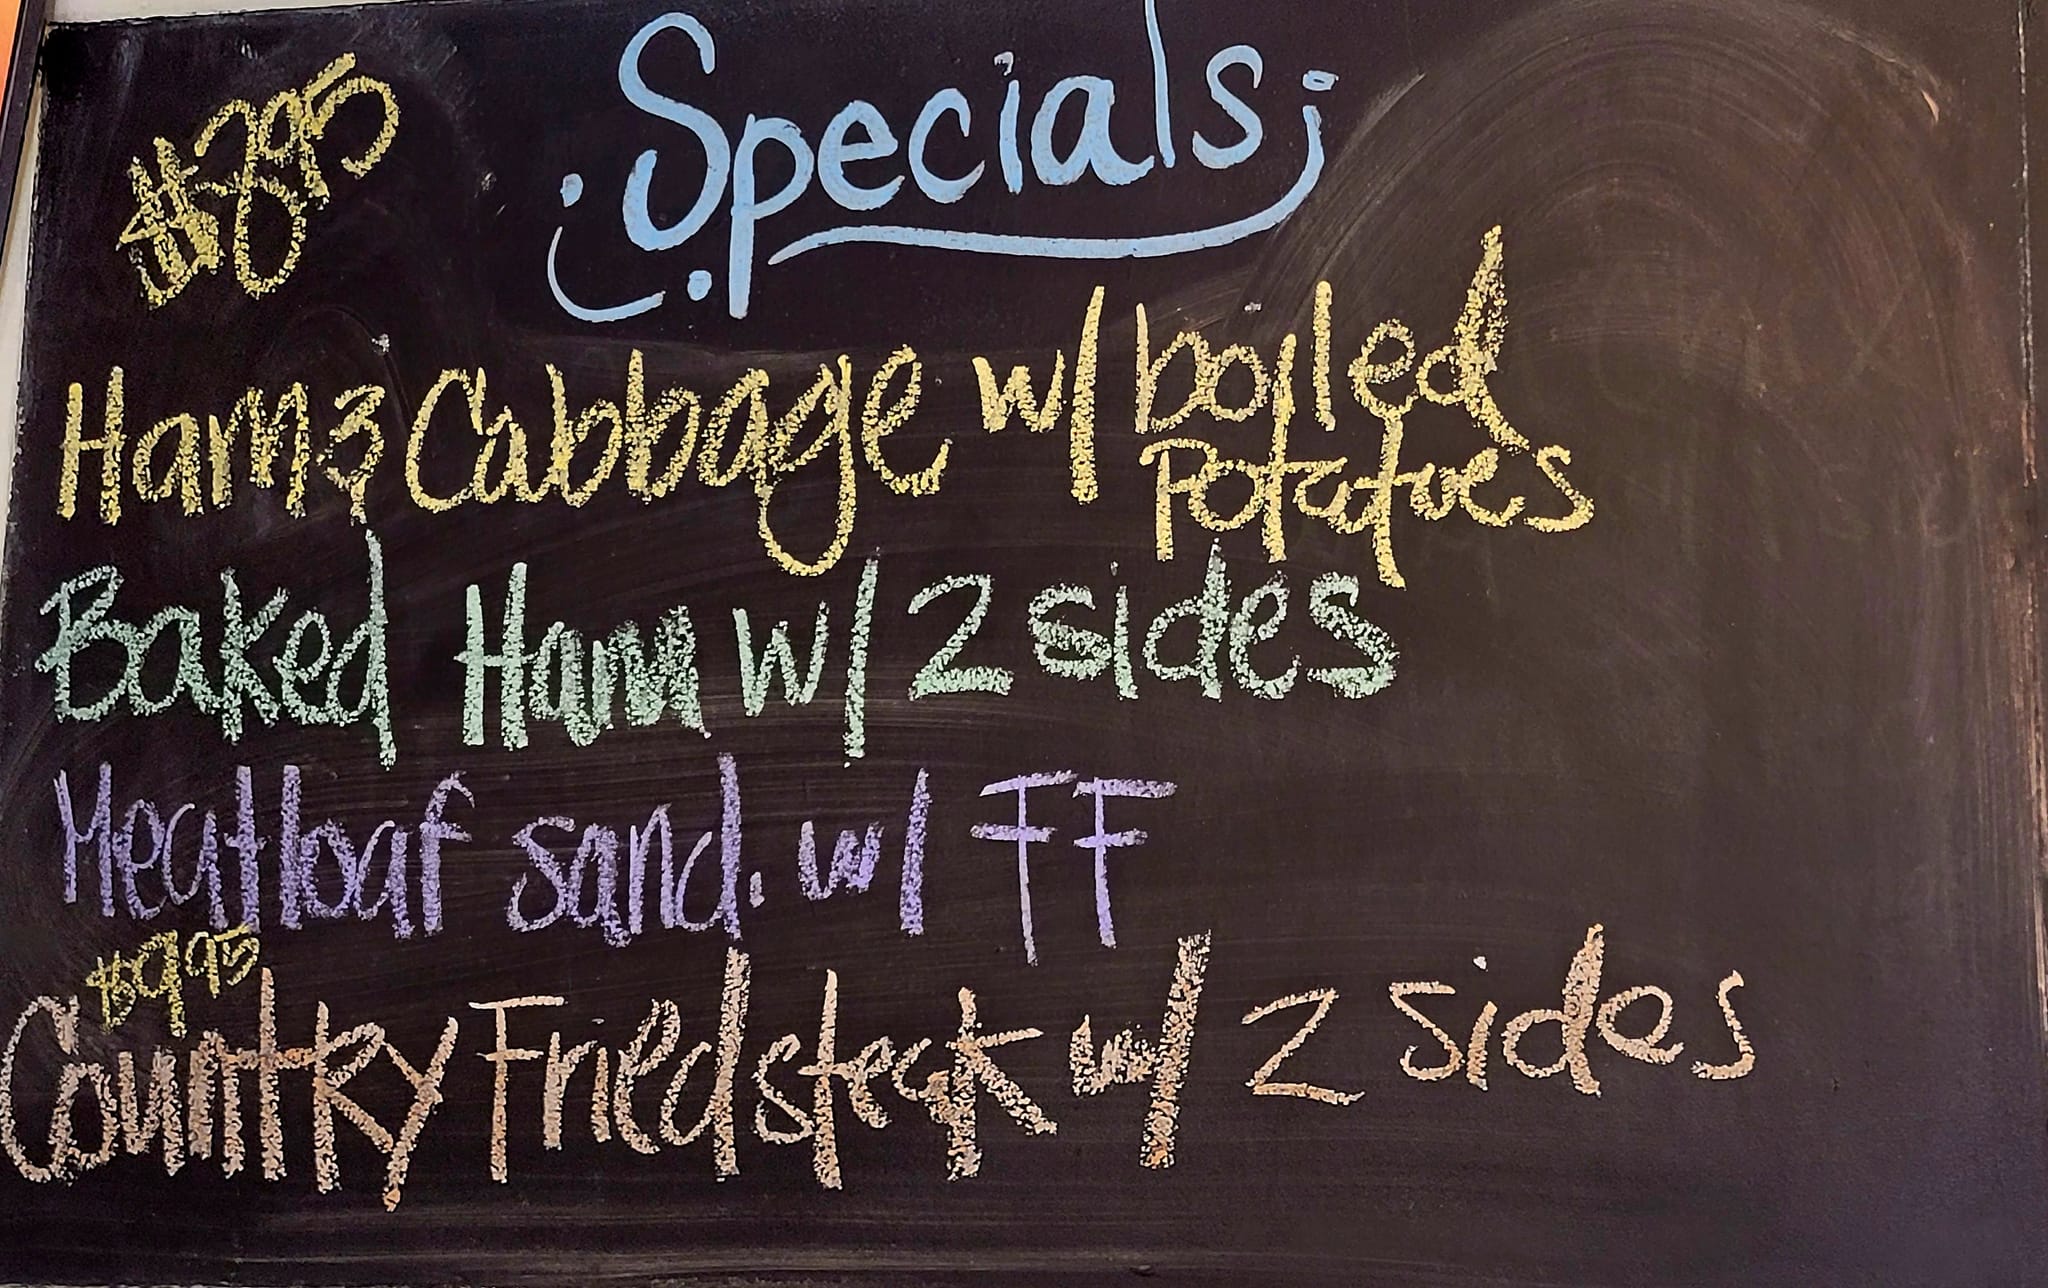 Specials
$8.95
Ham & Cabbage w/ boiled
Potatoes
Baked Ham w/ 2 sides
Meatloaf sand. w/ FF
$9.95
Country Fried steak w/ 2 sides